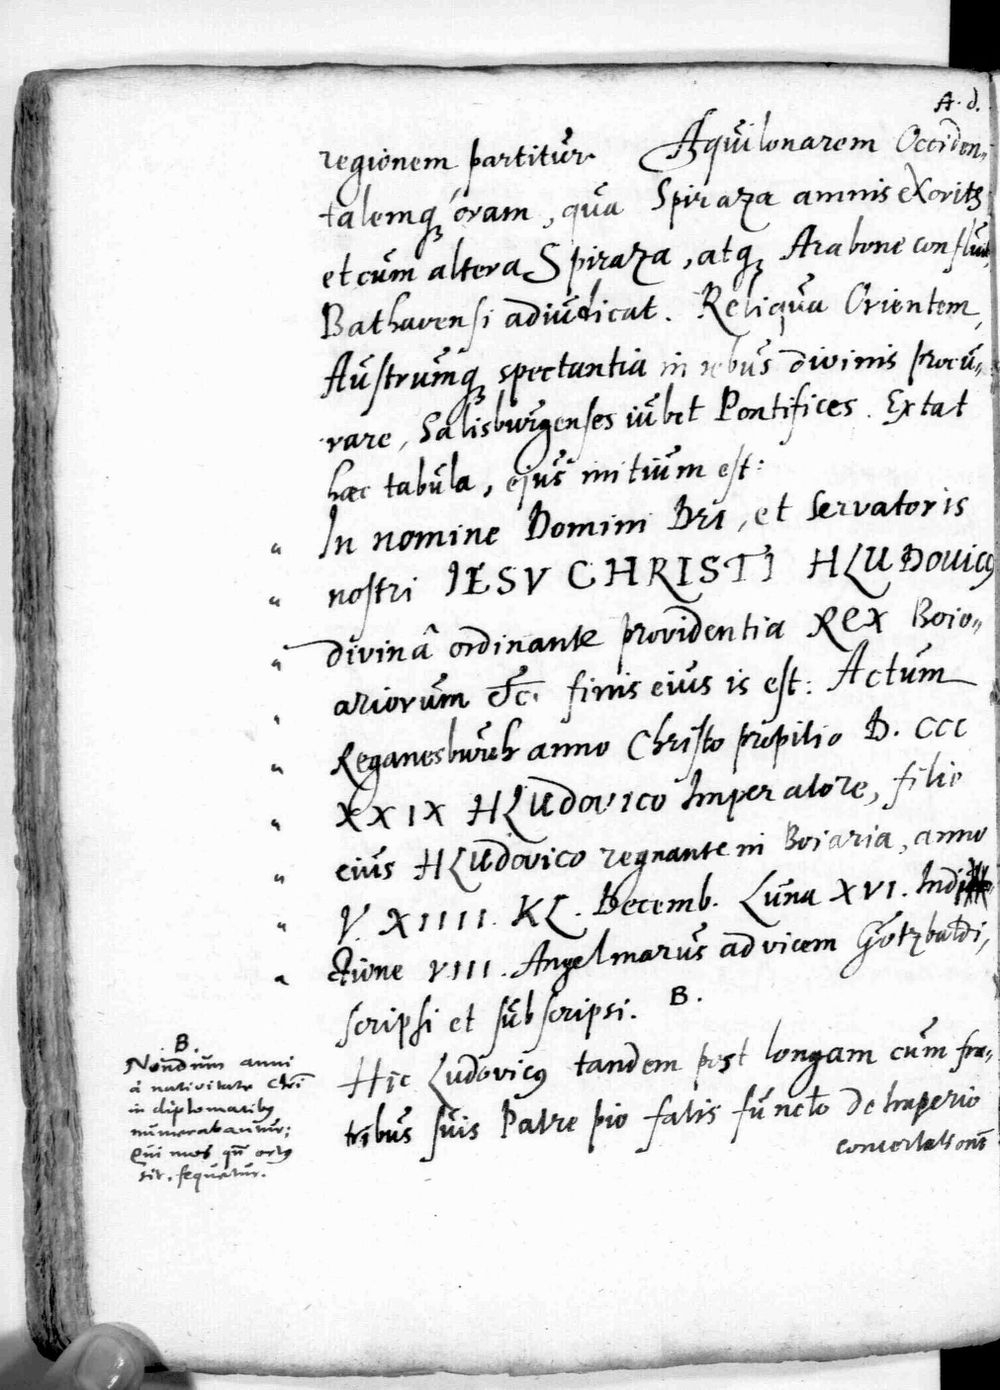 A. d.
regionem partitur. Aquilonarem Occiden„
talemq́ oram, qua Spiraza amnis exorits
et cum altera Spiraza, atq́ Arabone confluit,
Bathavensi adiudicat. Reliqua Orientem,
Austrumq́ spectantia in rebus divinis procu„
rare, Salisburgenses iubet Pontifices. Extat
hæc tabula, ejus initium est:
„ In nomine Domini Dei, et Servatoris
„ nostri IESV CHRISTI HLUDovicꝯ
„ divinâ ordinante providentia REX Boio„
„ ariorum &c. finis eius is est: Actum
„ Reganesburch anno Christo propitio D. CCC
„ XXIX HLUDovico Imperatore, filio
„ eius HLUDovico regnante in Boiaria, anno
„ V. XIIII. KL. Decemb. Luna XVI. Indi
„ ctione VIII. Angelmarus ad vicem Gotzbaldi,
scripsi et subscripsi. B.
Hic Ludovicꝯ tandem post longam cum fra„
tribus suis Patre pio fatis functo de Imperio
concertationē
B.
Nondum anni
à nativitate Chri̅
in diplomatibꝯ
numerabantur;
Qui mos qn̅ ortꝯ
sit, sequetur.